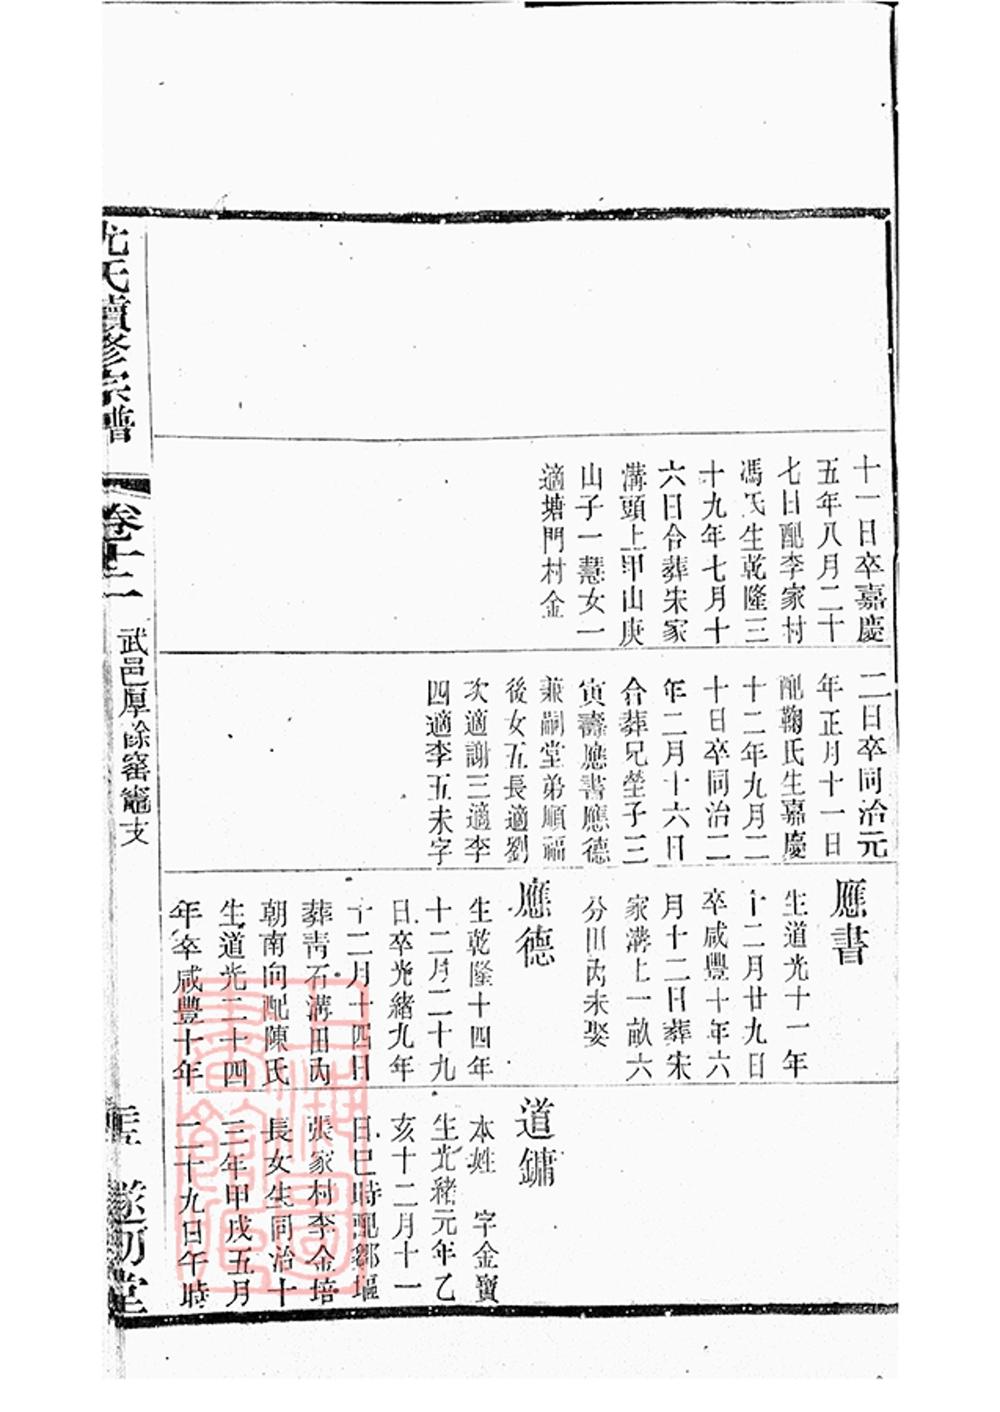 十一日卒嘉慶
五年八月二十
七日配李家村
馮氏生乾隆三
十九年七月十
六日合葬朱家
溝頭上甲山庚
山子一慧女一
適塘門村金
二日卒同治元
年正月十一日
配鞠氏生嘉慶
十二年九月二
十日卒同治二
年二月十六日
合葬兄塋子三
寅壽應書應德
兼嗣堂弟順福
後女五長適劉
次適謝三適李
四適李五未字
應書
生道光十一年
十二月廿九日
卒咸豐十年六
月十二日葬宋
家溝上一畝六
分田內未娶
應德
生乾隆十四年
十二月二十九
日卒光緒九年
十二月十四日
葬靑石溝田內
朝南向配陳氏
生道光二十四
年卒咸豐十年
道鏞
本姓 字金寶
生光緒元年乙
亥十二月十一
日巳時配鄉
張家村李金培
長女生同治十
三年甲戌五月
二十九日午時
尤氏續修宗譜
卷十二
武邑厚餘窰竈支
遂初堂
上海圖書館藏